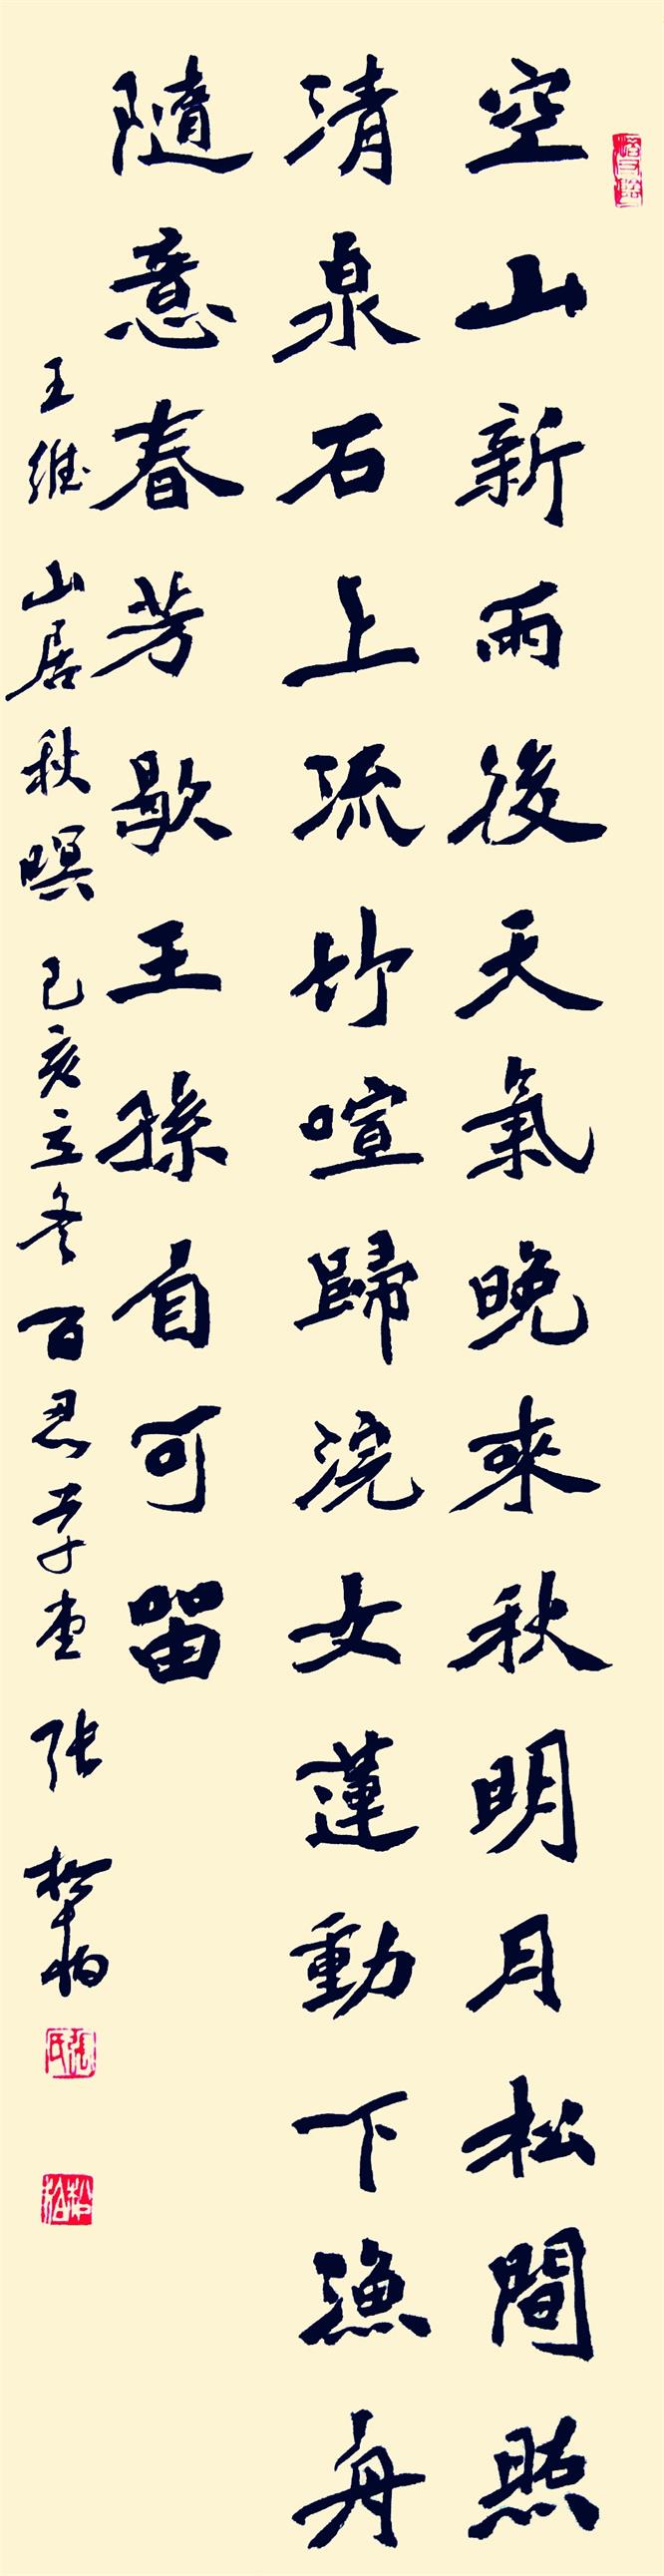 空山新雨後天氣晚來秋明月松間照
清泉石上流竹喧歸浣女蓮動下漁舟
隨意春芳歇王孫自可留
王維 山居秋暝 己亥立冬 百忍草堂 张
張氏